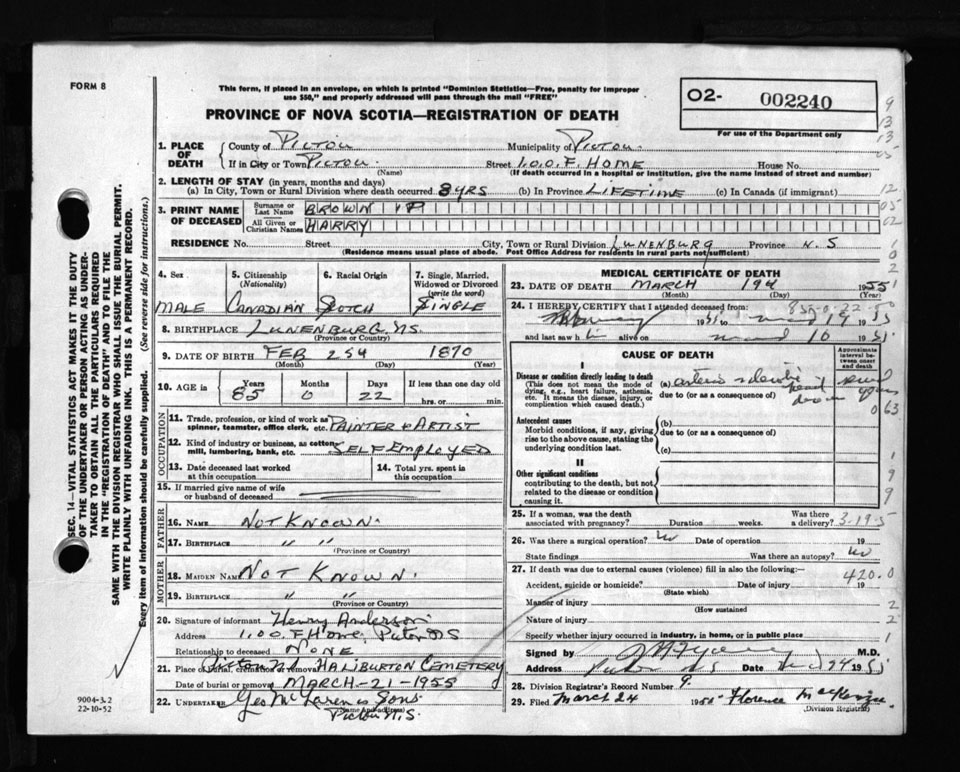 FORM 8
This form, if placed in an envelope, on which is printed "Dominion Statistics—Free, penalty for improper
use $50," and properly addressed will pass through the mail "FREE"
O2- 002240
For use of the Department only
PROVINCE OF NOVA SCOTIA—REGISTRATION OF DEATH
1. PLACE OF DEATH
County of PICTOU Municipality of PICTOU.
If in City or Town PICTOU. Street I.O.O.F. HOME House No.
(Name) (If death occurred in a hospital or institution, give the name instead of street and number)
2. LENGTH OF STAY (in years, months and days)
(a) In City, Town or Rural Division where death occurred 8 YRS (b) In Province LIFETIME (c) In Canada (if immigrant)
3. PRINT NAME OF DECEASED
Surname or Last Name BROWN
All Given or Christian Names HARRY
RESIDENCE No. Street City, Town or Rural Division LUNENBURG Province N.S
(Residence means usual place of abode. Post Office Address for residents in rural parts not sufficient)
4. Sex 5. Citizenship (Nationality) 6. Racial Origin 7. Single, Married, Widowed or Divorced (write the word)
MALE CANADIAN SCOTCH SINGLE
8. BIRTHPLACE LUNENBURG. NS.
(Province or Country)
9. DATE OF BIRTH FEB 25th 1870
(Month) (Day) (Year)
10. AGE in Years Months Days If less than one day old
85 0 22 hrs. or min.
OCCUPATION
11. Trade, profession, or kind of work as spinner, teamster, office clerk, etc. PAINTER & ARTIST
12. Kind of industry or business, as cotton mill, lumbering, bank, etc. SELF EMPLOYED
13. Date deceased last worked at this occupation 14. Total yrs. spent in this occupation
15. If married give name of wife or husband of deceased
FATHER
16. NAME NOT KNOWN.
17. BIRTHPLACE " "
(Province or Country)
MOTHER
18. MAIDEN NAME NOT KNOWN.
19. BIRTHPLACE " "
(Province or Country)
20. Signature of informant Henry Anderson
Address I.O.O.F Home, Pictou NS
Relationship to deceased NONE
21. Place of burial, cremation or removal Pictou N.S HALIBURTON CEMETERY
Date of burial or removal MARCH-21-1955
22. UNDERTAKER Geo McLaren & Sons
(Name and address)
Pictou N.S.
MEDICAL CERTIFICATE OF DEATH
23. DATE OF DEATH MARCH 19th 1955
(Month) (Day) (Year)
24. I HEREBY CERTIFY that I attended deceased from:
1951 to 19 1955
and last saw h alive on 16 19
CAUSE OF DEATH
Approximate interval between onset and death
I
Disease or condition directly leading to death
(This does not mean the mode of dying, e.g., heart failure, asthenia, etc. It means the disease, injury, or complication which caused death.)
(a)
due to (or as a consequence of)
063
Antecedent causes
Morbid conditions, if any, giving rise to the above cause, stating the underlying condition last.
(b)
due to (or as a consequence of)
(c)
II
Other significant conditions
contributing to the death, but not related to the disease or condition causing it.
25. If a woman, was the death associated with pregnancy? Duration weeks. Was there a delivery? 3-19-5
26. Was there a surgical operation? no Date of operation 19
State findings Was there an autopsy? no
27. If death was due to external causes (violence) fill in also the following:— 420.0
Accident, suicide or homicide? Date of injury 19
(State which)
Manner of injury
(How sustained)
Nature of injury
Specify whether injury occurred in industry, in home, or in public place
Signed by M.D.
Address Pictou N.S Date 24 19
28. Division Registrar's Record Number 9.
29. Filed March 24 1955 Florence MacKenzie
(Division Registrar)
SEC. 14—VITAL STATISTICS ACT MAKES IT THE DUTY
OF THE UNDERTAKER OR PERSON ACTING AS UNDER-
TAKER TO OBTAIN ALL THE PARTICULARS REQUIRED
IN THE "REGISTRATION OF DEATH" AND TO FILE THE
SAME WITH THE DIVISION REGISTRAR WHO SHALL ISSUE THE BURIAL PERMIT.
WRITE PLAINLY WITH UNFADING INK. THIS IS A PERMANENT RECORD.
Every item of information should be carefully supplied. (See reverse side for instructions.)
9004-3.2
22-10-52